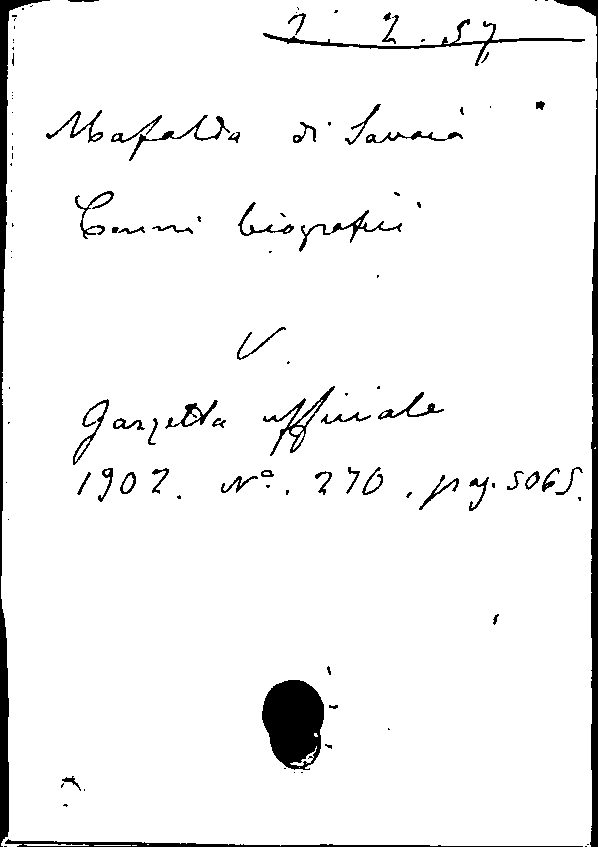 2. 2. 57
Mafalda di Savoia
Cenni biografici
V.
Gazzetta ufficiale
1902. Nº. 270. pag. 5065.